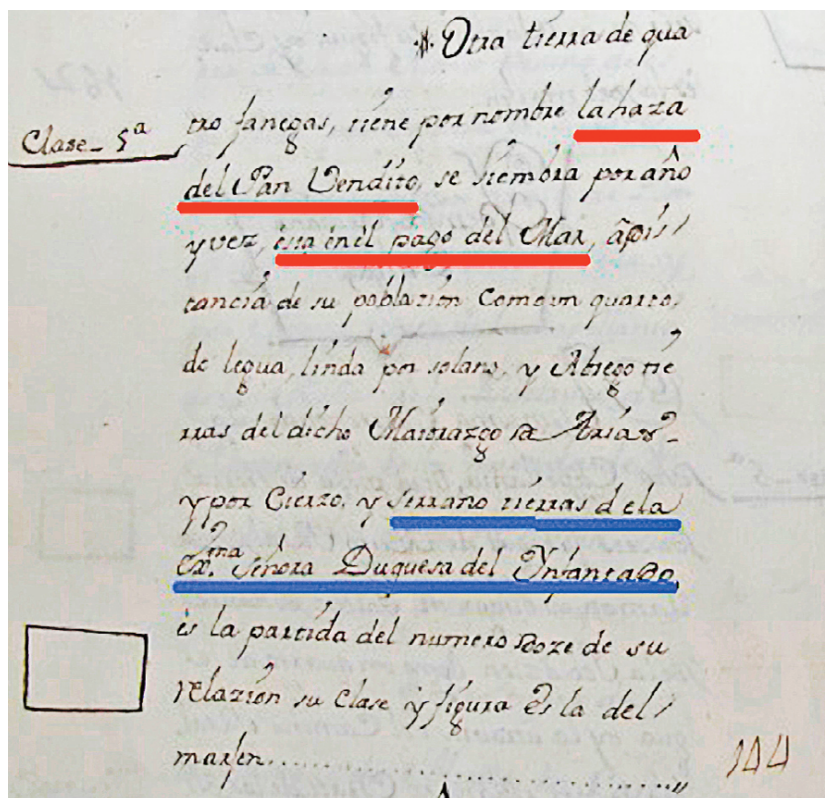 Otra tierra de qua
Clase- 5ª
tro fanegas, tiene por nombre la haza
del Pan Vendito, se siembra por año
y vez, esta en el pago del Mar, a dis
tancia de su poblazion como un quarto,
de legua, linda por solano, y Abrego tie
rras del dicho Maiorazgo de Arias
y por Cierzo, y serrano tierras de la
Exma Señora Duquesa del Ynfantado
es la partida del numero doze de su
relazion su clase y figura es la del
marjen
144